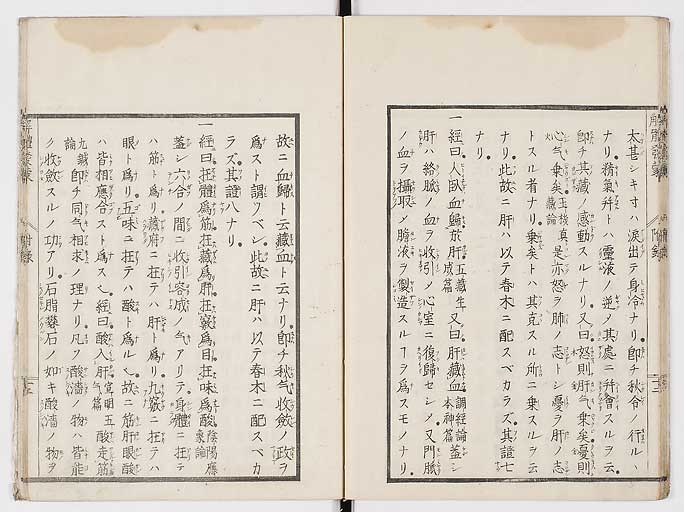 太甚シキオハ涙出テ身冷ナリ。即チ秋令ノ行ルヽ
ナリ。精氣并トハ靈液ノ逆ノ其處ニ并會スルヲ云
即チ其藏ノ感動スルナリ。又曰怒則肝气乗矣憂則
心气乗矣玉機真藏論是亦怒ヲ肺ノ志トシ憂ヲ肝ノ志
トスル者ナリ。乗矣トハ其克スル所ニ乗スルヲ云
ナリ。此故ニ肝ハ以テ春木ニ配スベカラズ。其證七
ナリ
一經曰人臥血歸於肝五藏生成篇又曰肝藏血調經論本神篇蓋シ
肝ハ絡脉ノ血ヲ收引ノ心室ニ復歸セシノ又門脈
ノ血ヲ攝取メ膽液ヲ製造スルヿヲ爲スモノナリ
故ニ血歸ト云藏血ト云ナリ。即チ秋气收斂ノ政ヲ
爲スト謂ツベシ。此故ニ肝ハ以テ春木ニ配スベカ
ラズ其證八ナリ
一經曰在體爲筋在藏爲肝在竅爲目在味爲酸陰陽應象論
蓋シ六合ノ間ニ收引容成ノ气アリテ身體ニ在テ
ハ筋ト爲リ藏府ニ在テハ肝ト爲リ九竅ニ在テハ
眼ト爲リ五味ニ在テハ酸ト爲ル。故ニ筋肝眼酸
ハ皆相應合スト爲ス。經曰酸入肝气宣明五篇酸走筋
九鍼論即チ同气相求ノ理ナリ。凡ソ酸濇ノ物ハ皆能
ク收斂スルノ功アリ。石脂礬石ノ如キ酸濇ノ物ヲ
解體發蒙
附録